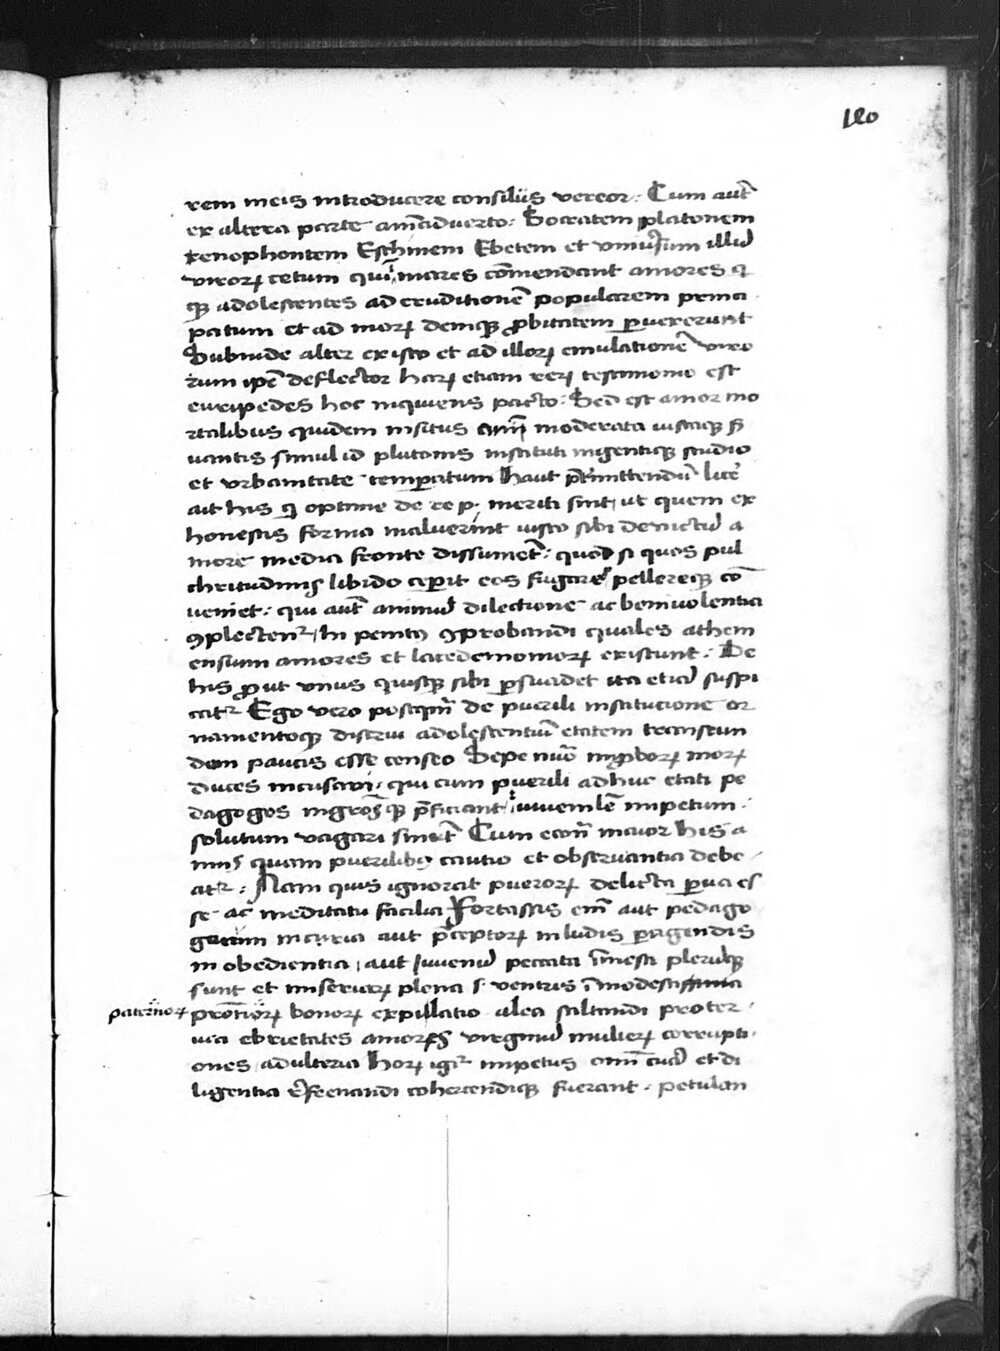 120
rem meis introducere consiliis vereor. Cum aut̄
ex altera parte am̄aduerto: Socratem platonem
xenophontem Eschinem Ebetem et vniuersum illud
virorꝝ cetum qui mares cōmendant amores q
qꝫ adolescentes ad eruditionē popularem princi
patum et ad morꝝ deniqꝫ ꝓbitatem ꝑuexerunt
Subinde alter existo et ad illorꝝ emulationē viro
rum ip̄e deflector harꝝ etiam rerꝝ testimonio est
euripedes hoc inquiens pacto: Sed est amor mo
rtalibus quidem insitus animi moderata iustaqꝫ
uantis simul id platonis instituti ingentiqꝫ studio
et vrbanitate temperatum haut p̄termittendū licē
ait his q optime de re p. meriti sint, ut quem ex
honestis forma maluerint iusto sibi deuictū a
more media fronte dissuniet̄: quod si quos pul
chritudinis libido ceperit eos fugare pellereqꝫ cō
ueniet: qui aut̄ animū dilectione ac beniuolentia
ꝯplectent̄ hi penitꝰ ꝯprobandi quales athem
ensium amores et lacedemoniorꝝ existunt. De
his ꝓut vnus quisqꝫ sibi ꝑsuadet ita etiā suspi
cat̄ Ego vero posteaqm̄ de puerili institucione or
namentoqꝫ disserui adolescentiū etatem transeun
dem paucis esse censeo Sepe nūo improborꝝ morꝝ
duces incusaui, qui cum puerili adhuc etati pe
dagogos ingrosqꝫ p̄ficiant, iuuenilē impetum
solutum vagari sinūt Cum econ̄ maior his a
nnis quam puerilibꝰ cautio et obseruantia debe
at̄: Nam quis ignorat puerorꝝ delicta ꝑua es
se ac meditatu facilia Fortassis em̄ aut pedago
gorum incuria aut p̄ceptorꝝ in ludis ꝑagendis
in obedientia, aut iuuenū peccata īmensa plerūqꝫ
sunt et miseriarꝝ plena s. ventris īmodestissimia
paternorꝝ
bonorꝝ expilatio alea saltandi proter
uia ebrietates amores virginū mulierꝝ corrupti
ones adulteria horꝝ igr̄ impetus om̄ curā et di
ligentia refrenandi cohercendiqꝫ fuerant. petulan